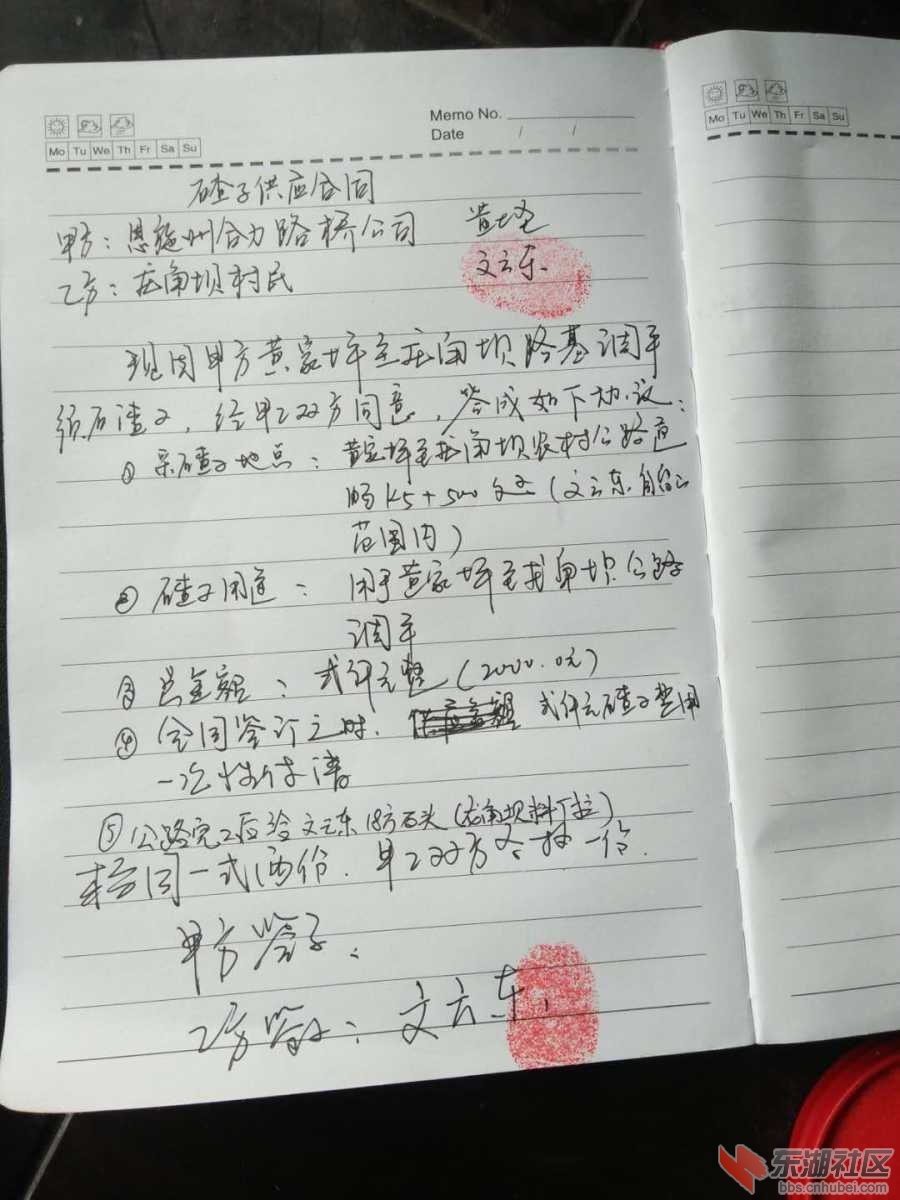 Memo No.
Date / /
Mo Tu We Th Fr Sa Su
Mo Tu We Th Fr Sa Su
碴子供应合同
甲方：恩施州合力路桥公司
乙方：龙角坝村民 文云东
现因甲方黄家坪至龙角坝路基调平
须石渣子，经甲乙双方同意，答成如下协议：
① 采碴子地点：黄家坪至龙角坝农村公路
K5+500处（文云东
范围内）
② 碴子用途：用于黄家坪至龙角坝公路
调平
③ 总金额：弍仟元整（2000.0元）
④ 合同签订之时，弍仟元碴子费用
一次性付清
⑤ 公路完工后给文云东18方石头（龙角坝料厂拉）
本合同一式两份．甲乙双方各执一份．
甲方签字：
乙方签字：文云东
东湖社区
bbs.cnhubei.com